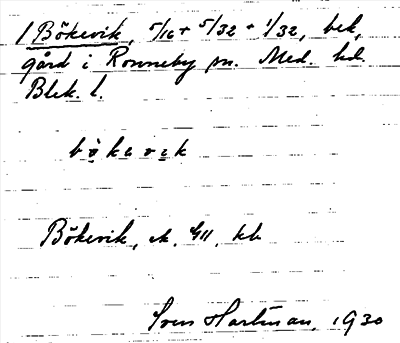 1 Bökevik, 5/16 + 5/32 + 1/32, bek.
gård i Ronneby sn. Med. hd.
Blek. l.
bökevik
Bökevik, ek. GII, kb
Sven Hartman, 1930